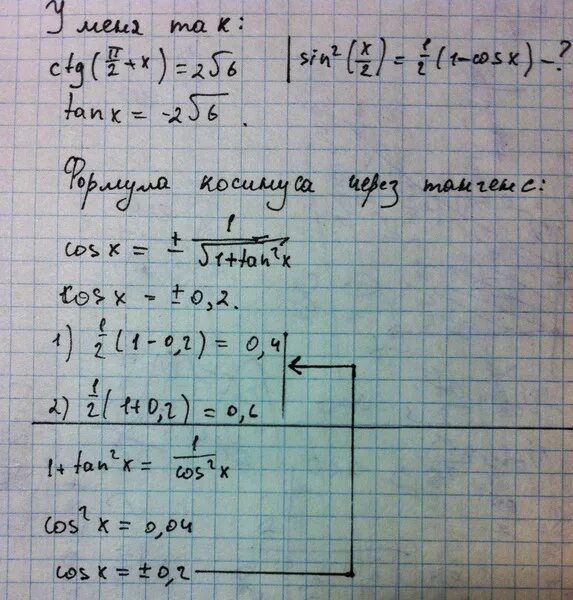 У меня так:
ctg(π/2 + x) = 2√6 | sin²(x/2) = 1/2(1-cosx) - ?
tanx = -2√6.
Формула косинуса через тангенс:
cosx = ± 1/√1+tan²x
cosx = ±0,2.
1) 1/2(1-0,2) = 0,4
2) 1/2(1+0,2) = 0,6
1+tan²x = 1/cos²x
cos²x = 0,04
cosx = ±0,2